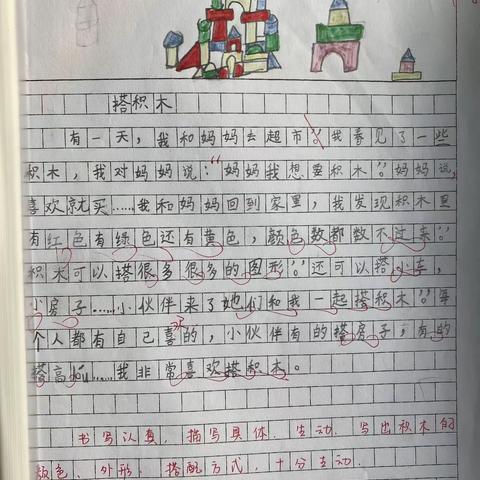 搭积木
有一天，我和妈妈去超市。我看见了一些
积木，我对妈妈说：“妈妈我想要积木。”妈妈说，
喜欢就买……我和妈妈回到家里，我发现积木里
有红色有绿色还有黄色，颜色数都数不过来。
积木可以搭很多很多的图形。还可以搭小车，
小房子……小伙伴来了她们和我一起搭积木。每
个人都有自己喜的，小伙伴有的搭房子，有的
搭高lóu……我非常喜欢搭积木。
书写认真，描写具体、生动，写出积木的
颜色、外形、搭配方式，十分生动.